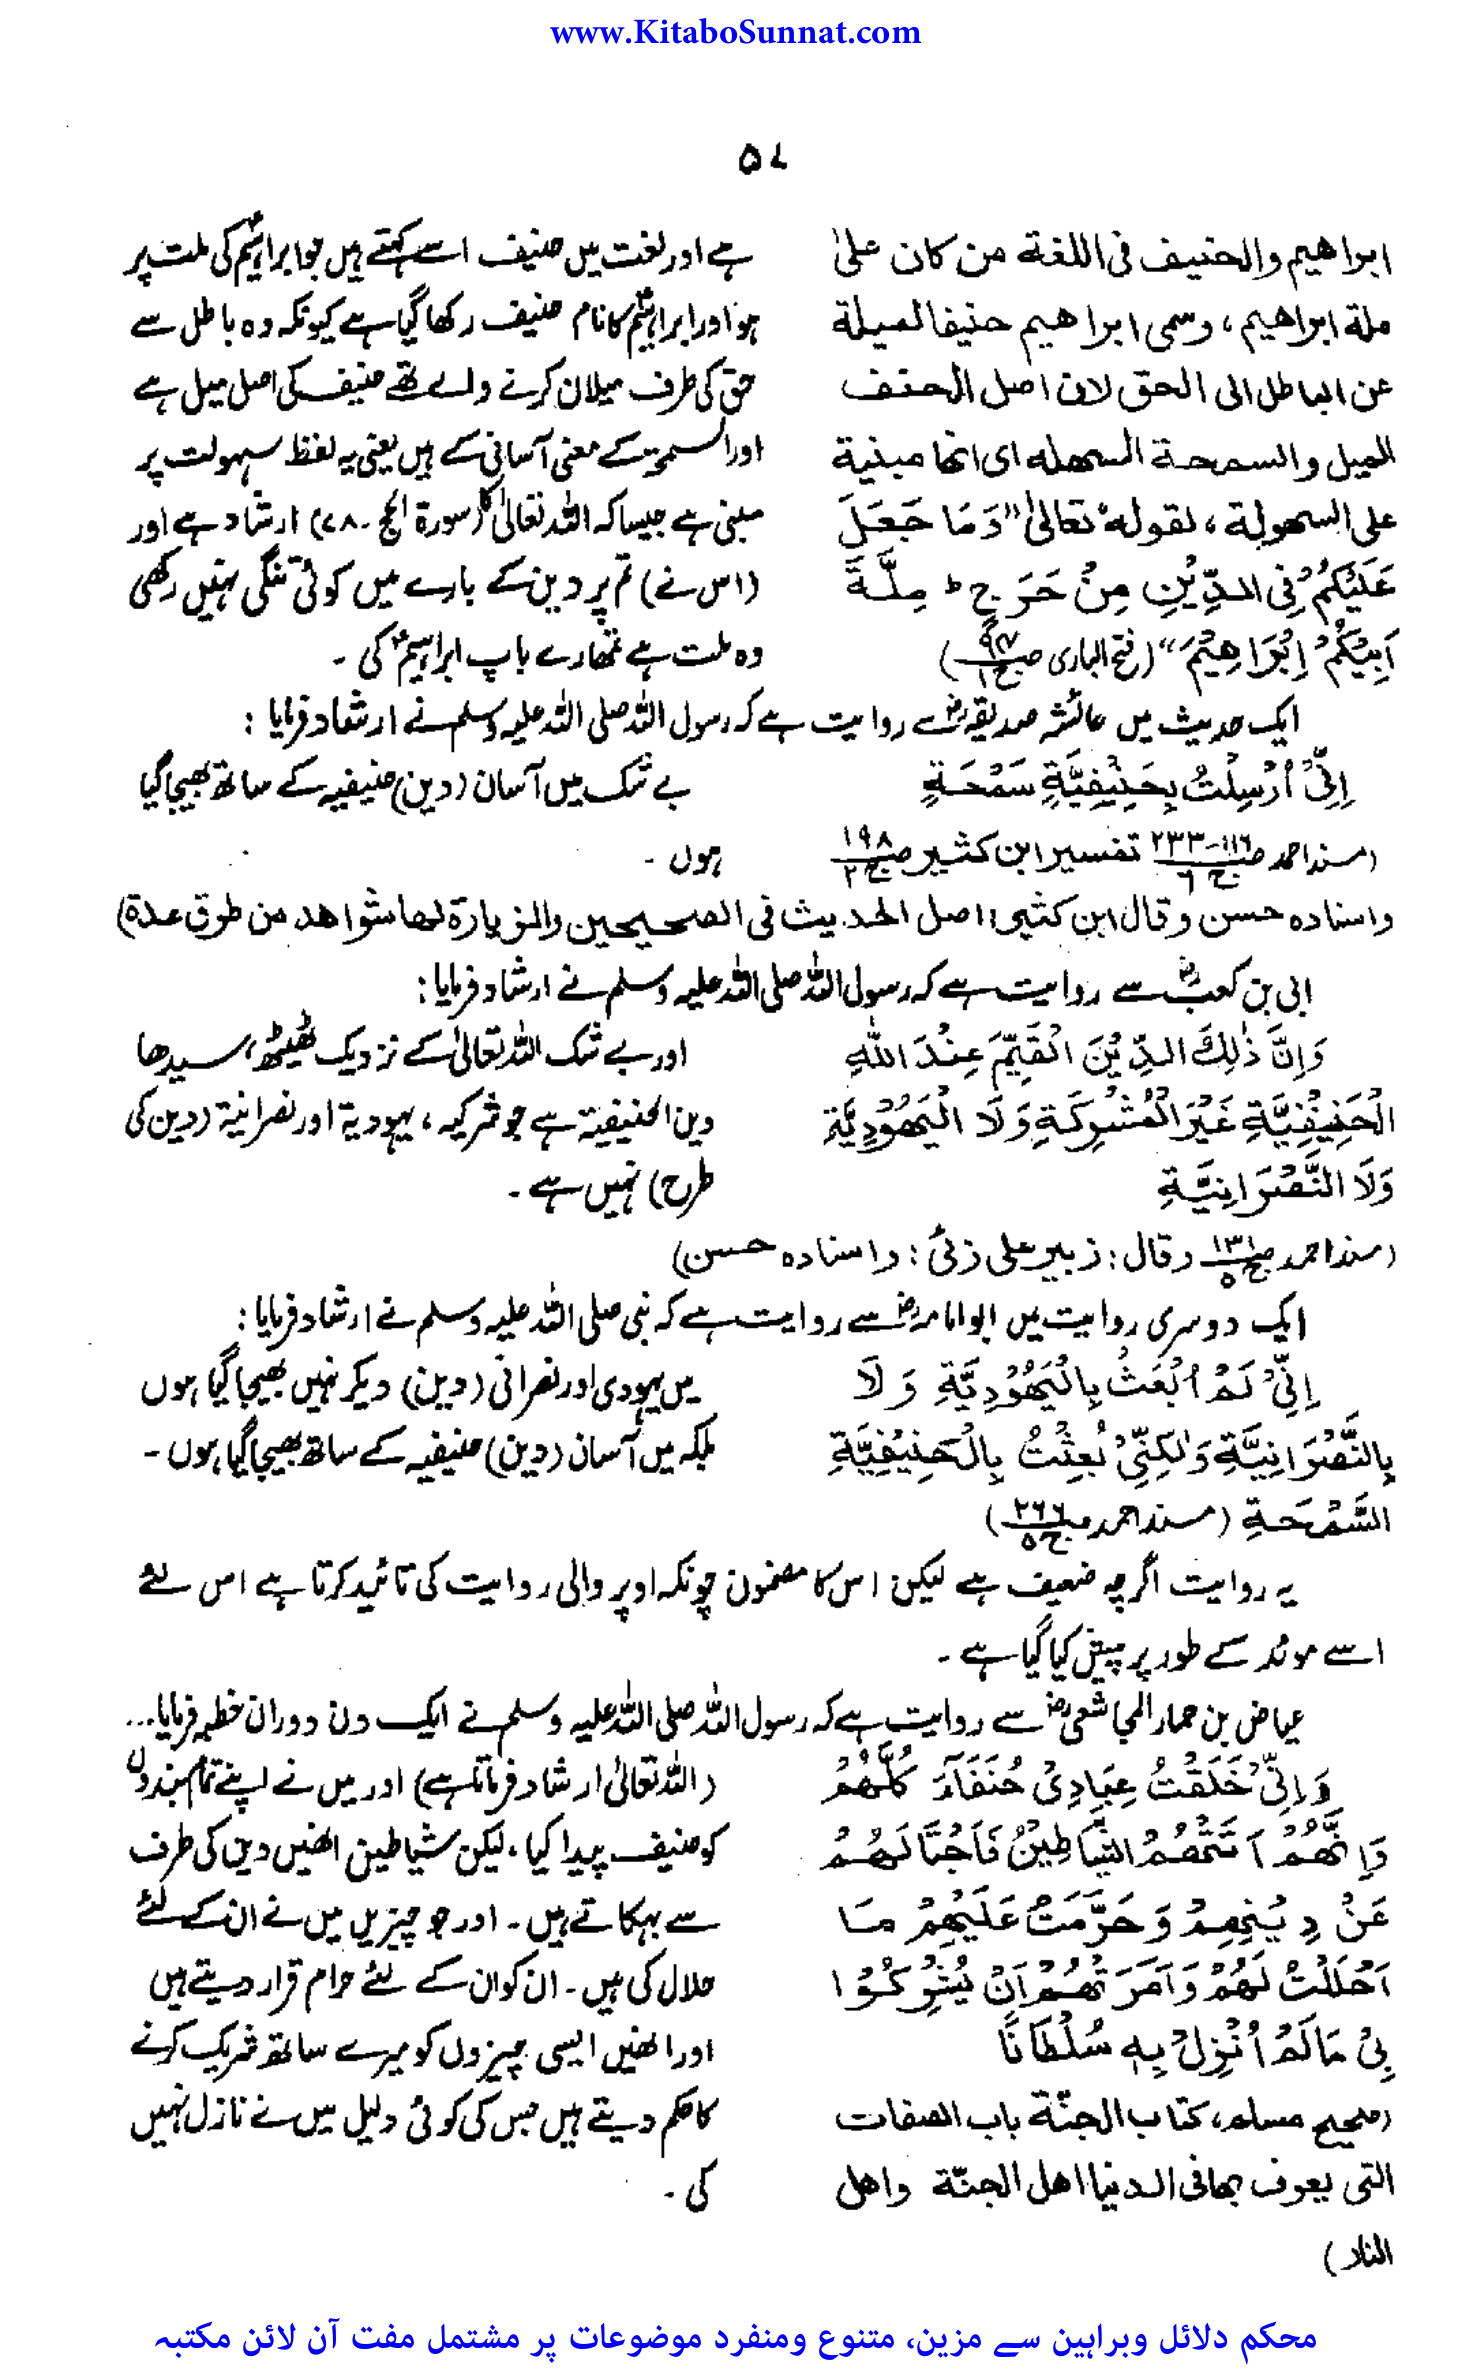 www.KitaboSunnat.com
۵۷
ابراھیم والحنیف فی اللغة من کان علیٰ
ملة ابراھیم، وسمی ابراھیم حنیفا لمیلة
عن الباطل الی الحق لان اصل الحنف
المیل والسمحة السھله ای انھا مبنیة
علی السھولة، لقولهٖ تعالیٰ "وَمَا جَعَلَ
عَلَیْکُمْ فِی الدِّیْنِ مِنْ حَرَجٍ ط مِلَّةَ
اَبِیْکُمْ اِبْرَاھِیْمَ" (فتح الباری صـ۹۴ ج۱)
ہے اور لغت میں حنیف اسے کہتے ہیں جو ابراہیمؑ کی ملت پر
ہو اور ابراہیمؑ کا نام حنیف رکھا گیا ہے کیونکہ وہ باطل سے
حق کی طرف میلان کرنے والے تھے حنیف کی اصل میل ہے
اور السمحۃ کے معنی آسانی کے ہیں یعنی یہ لفظ سہولت پر
مبنی ہے جیسا کہ اللہ تعالیٰ کا (سورۃ الحج ۔ ۷۸) ارشاد ہے اور
(اس نے) تم پر دین کے بارے میں کوئی تنگی نہیں رکھی
وہ ملت ہے تمھارے باپ ابراہیمؑ کی ۔
ایک حدیث میں عائشہ صدیقہؓ سے روایت ہے کہ رسول اللہ صلی اللہ علیہ وسلم نے ارشاد فرمایا :
اِنِّیْ اُرْسِلْتُ بِحَنِیْفِیَّةٍ سَمْحَةٍ
(مسند احمد صـ۱۱۶-۲۳۳ ج۶ تفسیر ابن کثیر صـ۱۹۸ ج۲
بے شک میں آسان (دین) حنیفیہ کے ساتھ بھیجا گیا
ہوں ۔
واسناده حسن وقال ابن کثیر: اصل الحدیث فی الصحیحین والزیارة لھا شواھد من طرق عدة)
ابی بن کعبؓ سے روایت ہے کہ رسول اللہ صلی اللہ علیہ وسلم نے ارشاد فرمایا :
وَاِنَّ ذٰلِکَ الدِّیْنَ الْقَیِّمَ عِنْدَ اللّٰهِ
الْحَنِیْفِیَّةِ غَیْرَ الْمُشْرِکَةِ وَلَا الْیَھُوْدِیَّةِ
وَلَا النَّصْرَانِیَّةِ
اور بے شک اللہ تعالیٰ کے نزدیک ٹھیٹھ، سیدھا
دین الحنیفیۃ ہے جو شرکیہ، یہودیۃ اور نصرانیۃ (دین کی
طرح) نہیں ہے ۔
(مسند احمد صـ۱۳۱ ج۵ وقال : زبیر علی زئی : واسناده حسن)
ایک دوسری روایت میں ابو امامہؓ سے روایت ہے کہ نبی صلی اللہ علیہ وسلم نے ارشاد فرمایا :
اِنِّیْ لَمْ اُبْعَثْ بِالْیَھُوْدِیَّةِ وَلَا
بِالنَّصْرَانِیَّةِ وَلٰکِنِّیْ بُعِثْتُ بِالْحَنِیْفِیَّةِ
السَّمْحَةِ (مسند احمد صـ۲۶۶ ج۵)
میں یہودی اور نصرانی (دین) دیکر نہیں بھیجا گیا ہوں
بلکہ میں آسان (دین) حنیفیہ کے ساتھ بھیجا گیا ہوں ۔
یہ روایت اگرچہ ضعیف ہے لیکن اس کا مضمون چونکہ اوپر والی روایت کی تائید کرتا ہے اس لئے
اسے موئد کے طور پر پیش کیا گیا ہے ۔
عیاض بن حمار المجاشعیؓ سے روایت ہے کہ رسول اللہ صلی اللہ علیہ وسلم نے ایک دن دوران خطبہ فرمایا...
وَاِنِّیْ خَلَقْتُ عِبَادِیْ حُنَفَآءَ کُلَّھُمْ
وَاِنَّھُمْ اَتَتْھُمُ الشَّیَاطِیْنُ فَاَجْتَالَھُمْ
عَنْ دِیْنِھِمْ وَحَرَّمَتْ عَلَیْھِمْ مَا
اَحْلَلْتُ لَھُمْ وَاَمَرَتْھُمْ اَنْ یُشْرِکُوْا
بِیْ مَا لَمْ اُنْزِلْ بِهٖ سُلْطَانًا
(صحیح مسلم، کتاب الجنّة باب الصفات
التی یعرف بھا فی الدنیا اھل الجنّة واھل
النار)
(اللہ تعالیٰ ارشاد فرماتا ہے) اور میں نے اپنے تمام بندوں
کو حنیف پیدا کیا، لیکن شیاطین انھیں دین کی طرف
سے بہکاتے ہیں ۔ اور جو چیزیں میں نے ان کے لئے
حلال کی ہیں ۔ ان کو ان کے لئے حرام قرار دیتے ہیں
اور انھیں ایسی چیزوں کو میرے ساتھ شریک کرنے
کا حکم دیتے ہیں جس کی کوئی دلیل میں نے نازل نہیں
کی ۔
محکم دلائل وبراہین سے مزین، متنوع ومنفرد موضوعات پر مشتمل مفت آن لائن مکتبہ